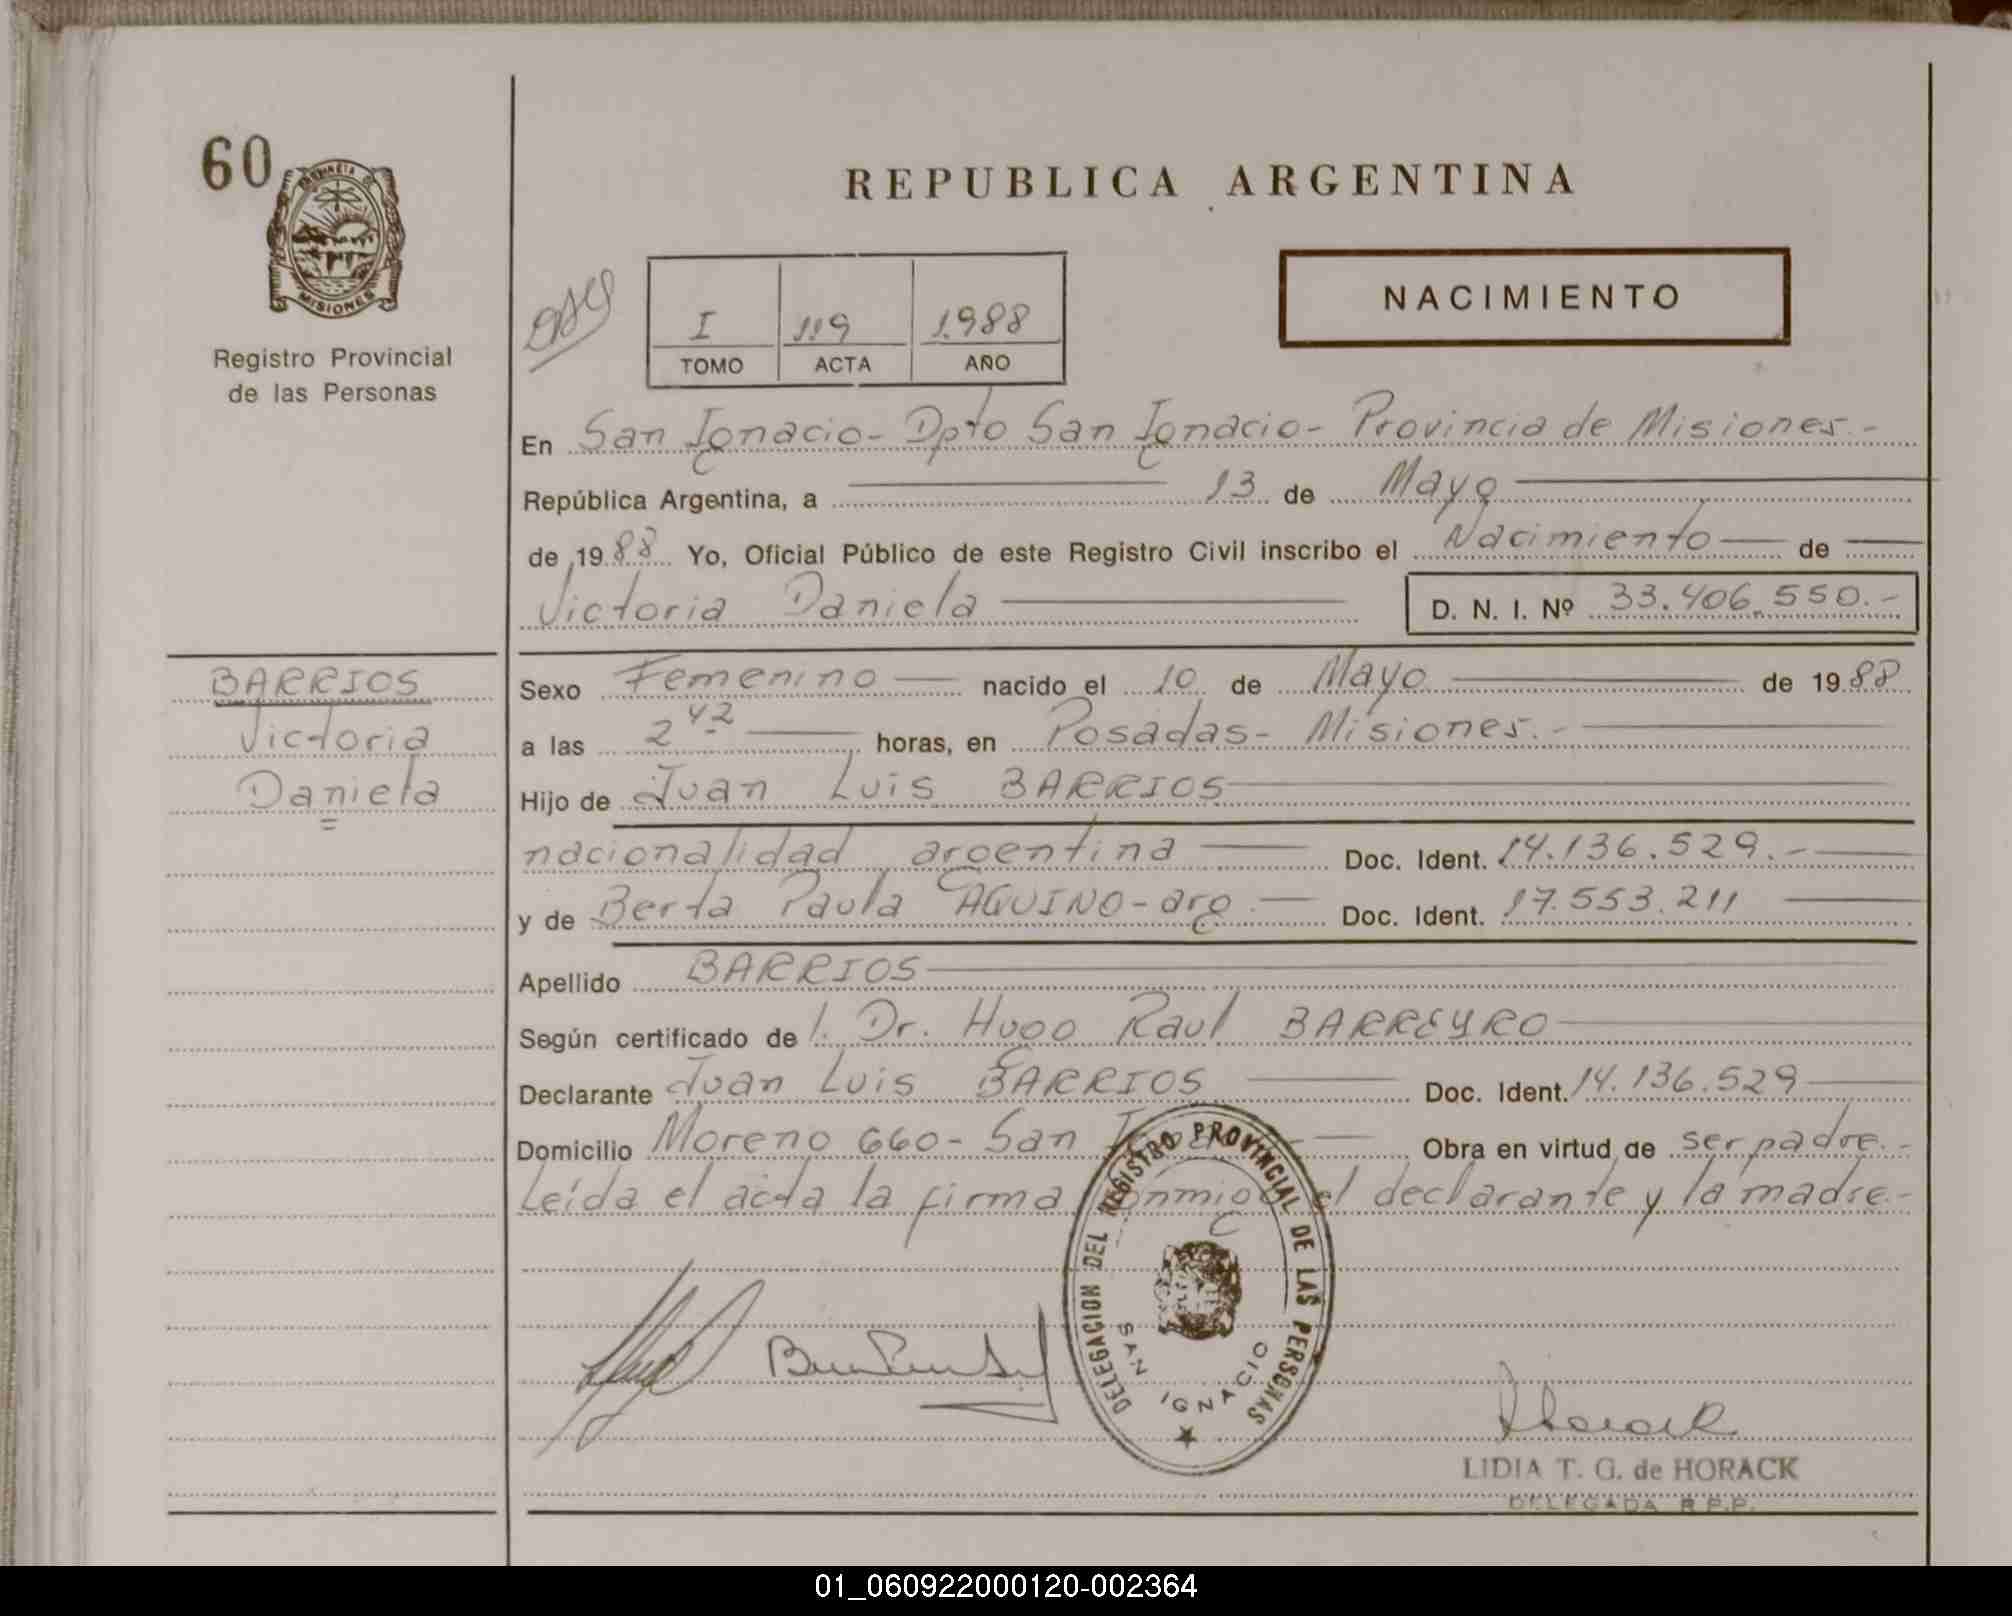 60
PROVINCIA DE
MISIONES
Registro Provincial
de las Personas
REPUBLICA ARGENTINA
I 119 1988
TOMO ACTA AÑO
NACIMIENTO
En San Ignacio- Dpto San Ignacio- Provincia de Misiones.-
República Argentina, a 13 de Mayo
de 1988 Yo, Oficial Público de este Registro Civil inscribo el Nacimiento de
Victoria Daniela D. N. I. Nº 33.406.550.-
BARRIOS
Victoria
Daniela
Sexo Femenino nacido el 10 de Mayo de 1988
a las 2 42 horas, en Posadas- Misiones.-
Hijo de Juan Luis BARRIOS
nacionalidad argentina Doc. Ident. 14.136.529.-
y de Berta Paula AQUINO-arg Doc. Ident. 17.553.211
Apellido BARRIOS
Según certificado de l. Dr. Hugo Raul BARREYRO
Declarante Juan Luis BARRIOS Doc. Ident. 14.136.529
Domicilio Moreno 660- San Obra en virtud de ser padre.-
Leída el acta la firma conmigo el declarante y la madre.-
DELEGACION DEL REGISTRO PROVINCIAL DE LAS PERSONAS
SAN IGNACIO
Horack
LIDIA T. G. de HORACK
DELEGADA R.P.P.
01_060922000120-002364